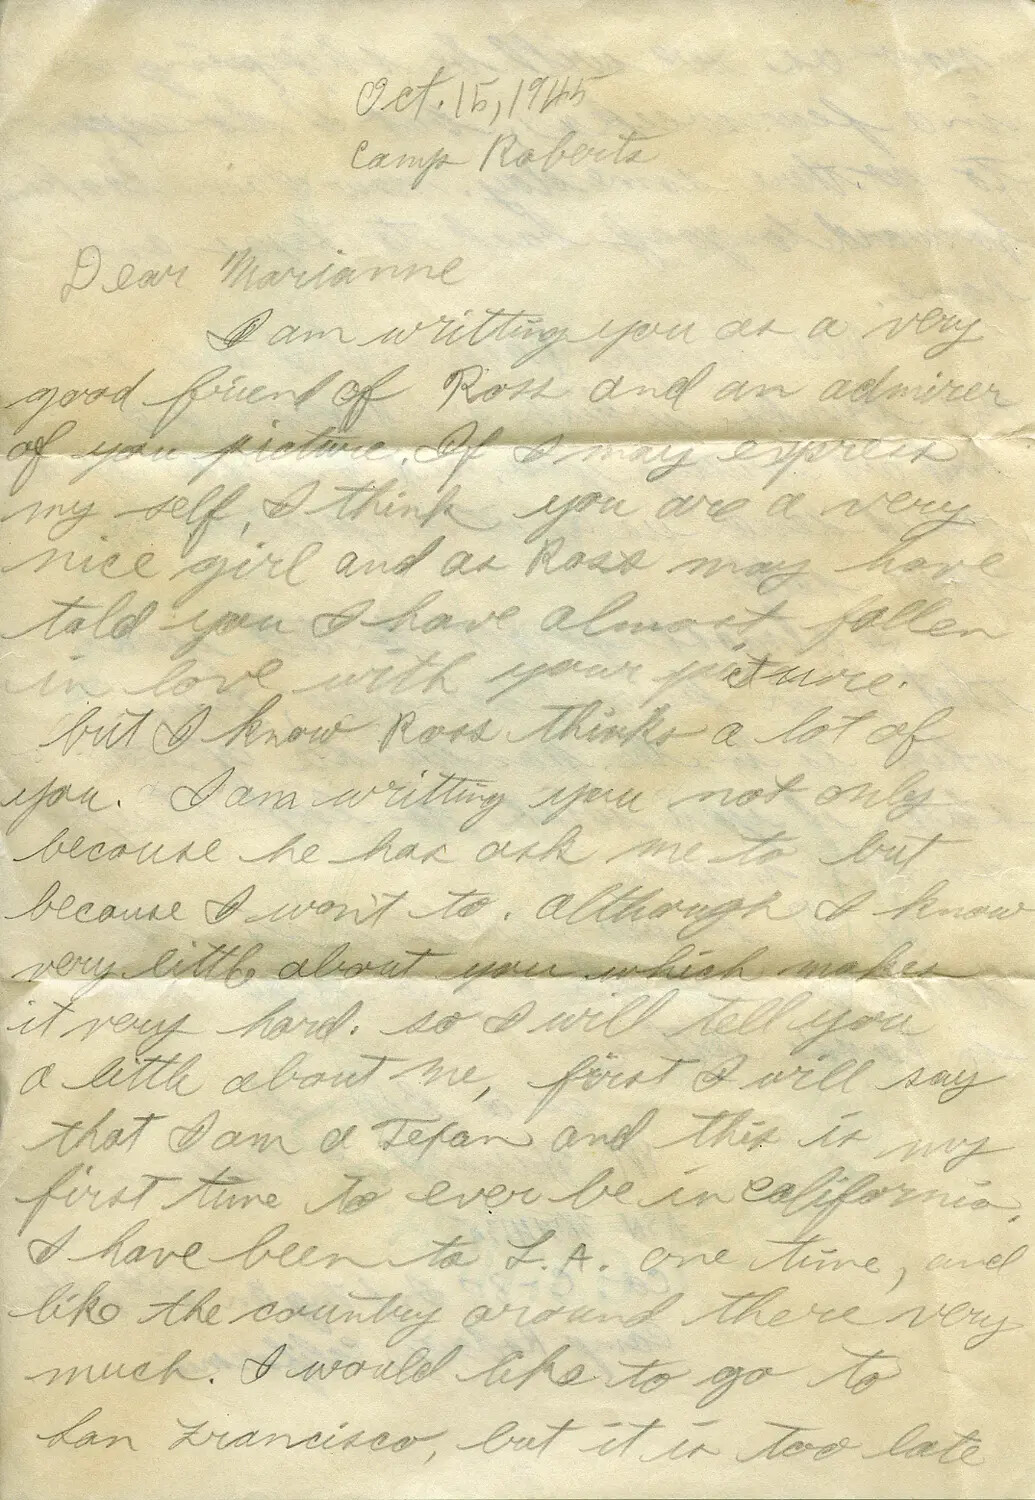 Oct. 15, 1945
Camp Roberts
Dear Marianne
I am writting you as a very
good friend of Ross and an admirer
of you picture. If I may express
my self, I think you are a very
nice girl and as Ross may have
told you I have almost fallen
in love with your picture.
but I know Ross thinks a lot of
you. I am writting you not only
because he has ask me to but
because I want to. although I know
very little about you which makes
it very hard. so I will tell you
a little about me, first I will say
that I am a Texan and this is my
first time to ever be in California.
I have been to L.A. one time, and
like the country around there very
much. I would like to go to
San Francisco, but it is too late